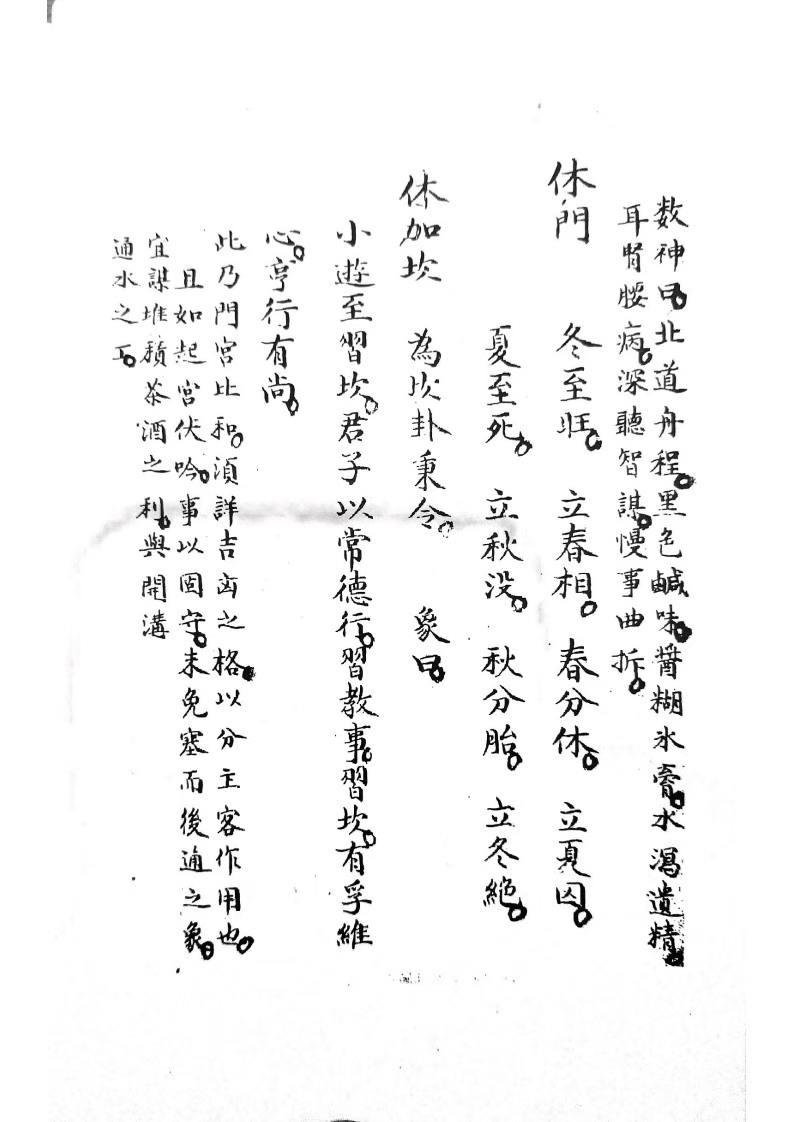 数神曰。北道舟程。黑色鹹味。醬糊氷膏。水瀉遺精。
耳腎腰病。深聽智謀。慢事曲折。
休門　冬至旺。　立春相。　春分休。　立夏囚。
夏至死。　立秋没。　秋分胎。　立冬絶。
休加坎　為坎卦秉令。　象曰。
小遊至習坎。君子以常德行。習教事。習坎。有孚維
心。亨行有尚。
此乃門宮比和。須詳吉凶之格。以分主客作用也。
且如起宮伏吟。事以固守。未免塞而後通之象。
宜謀堆積茶酒之利。與開溝
通水之工。